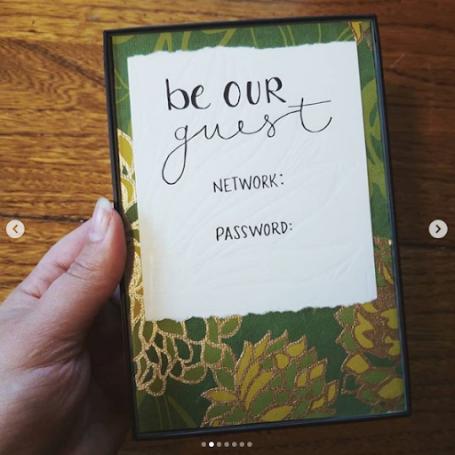 be OUR
guest
NETWORK:
PASSWORD: